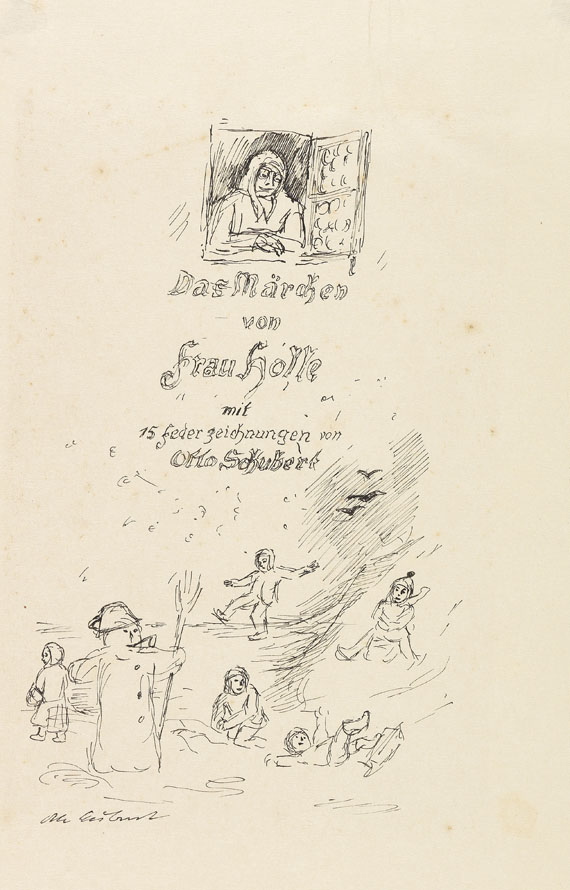 Das Märchen
von
Frau Holle
mit
15 Federzeichnungen von
Otto Schubert